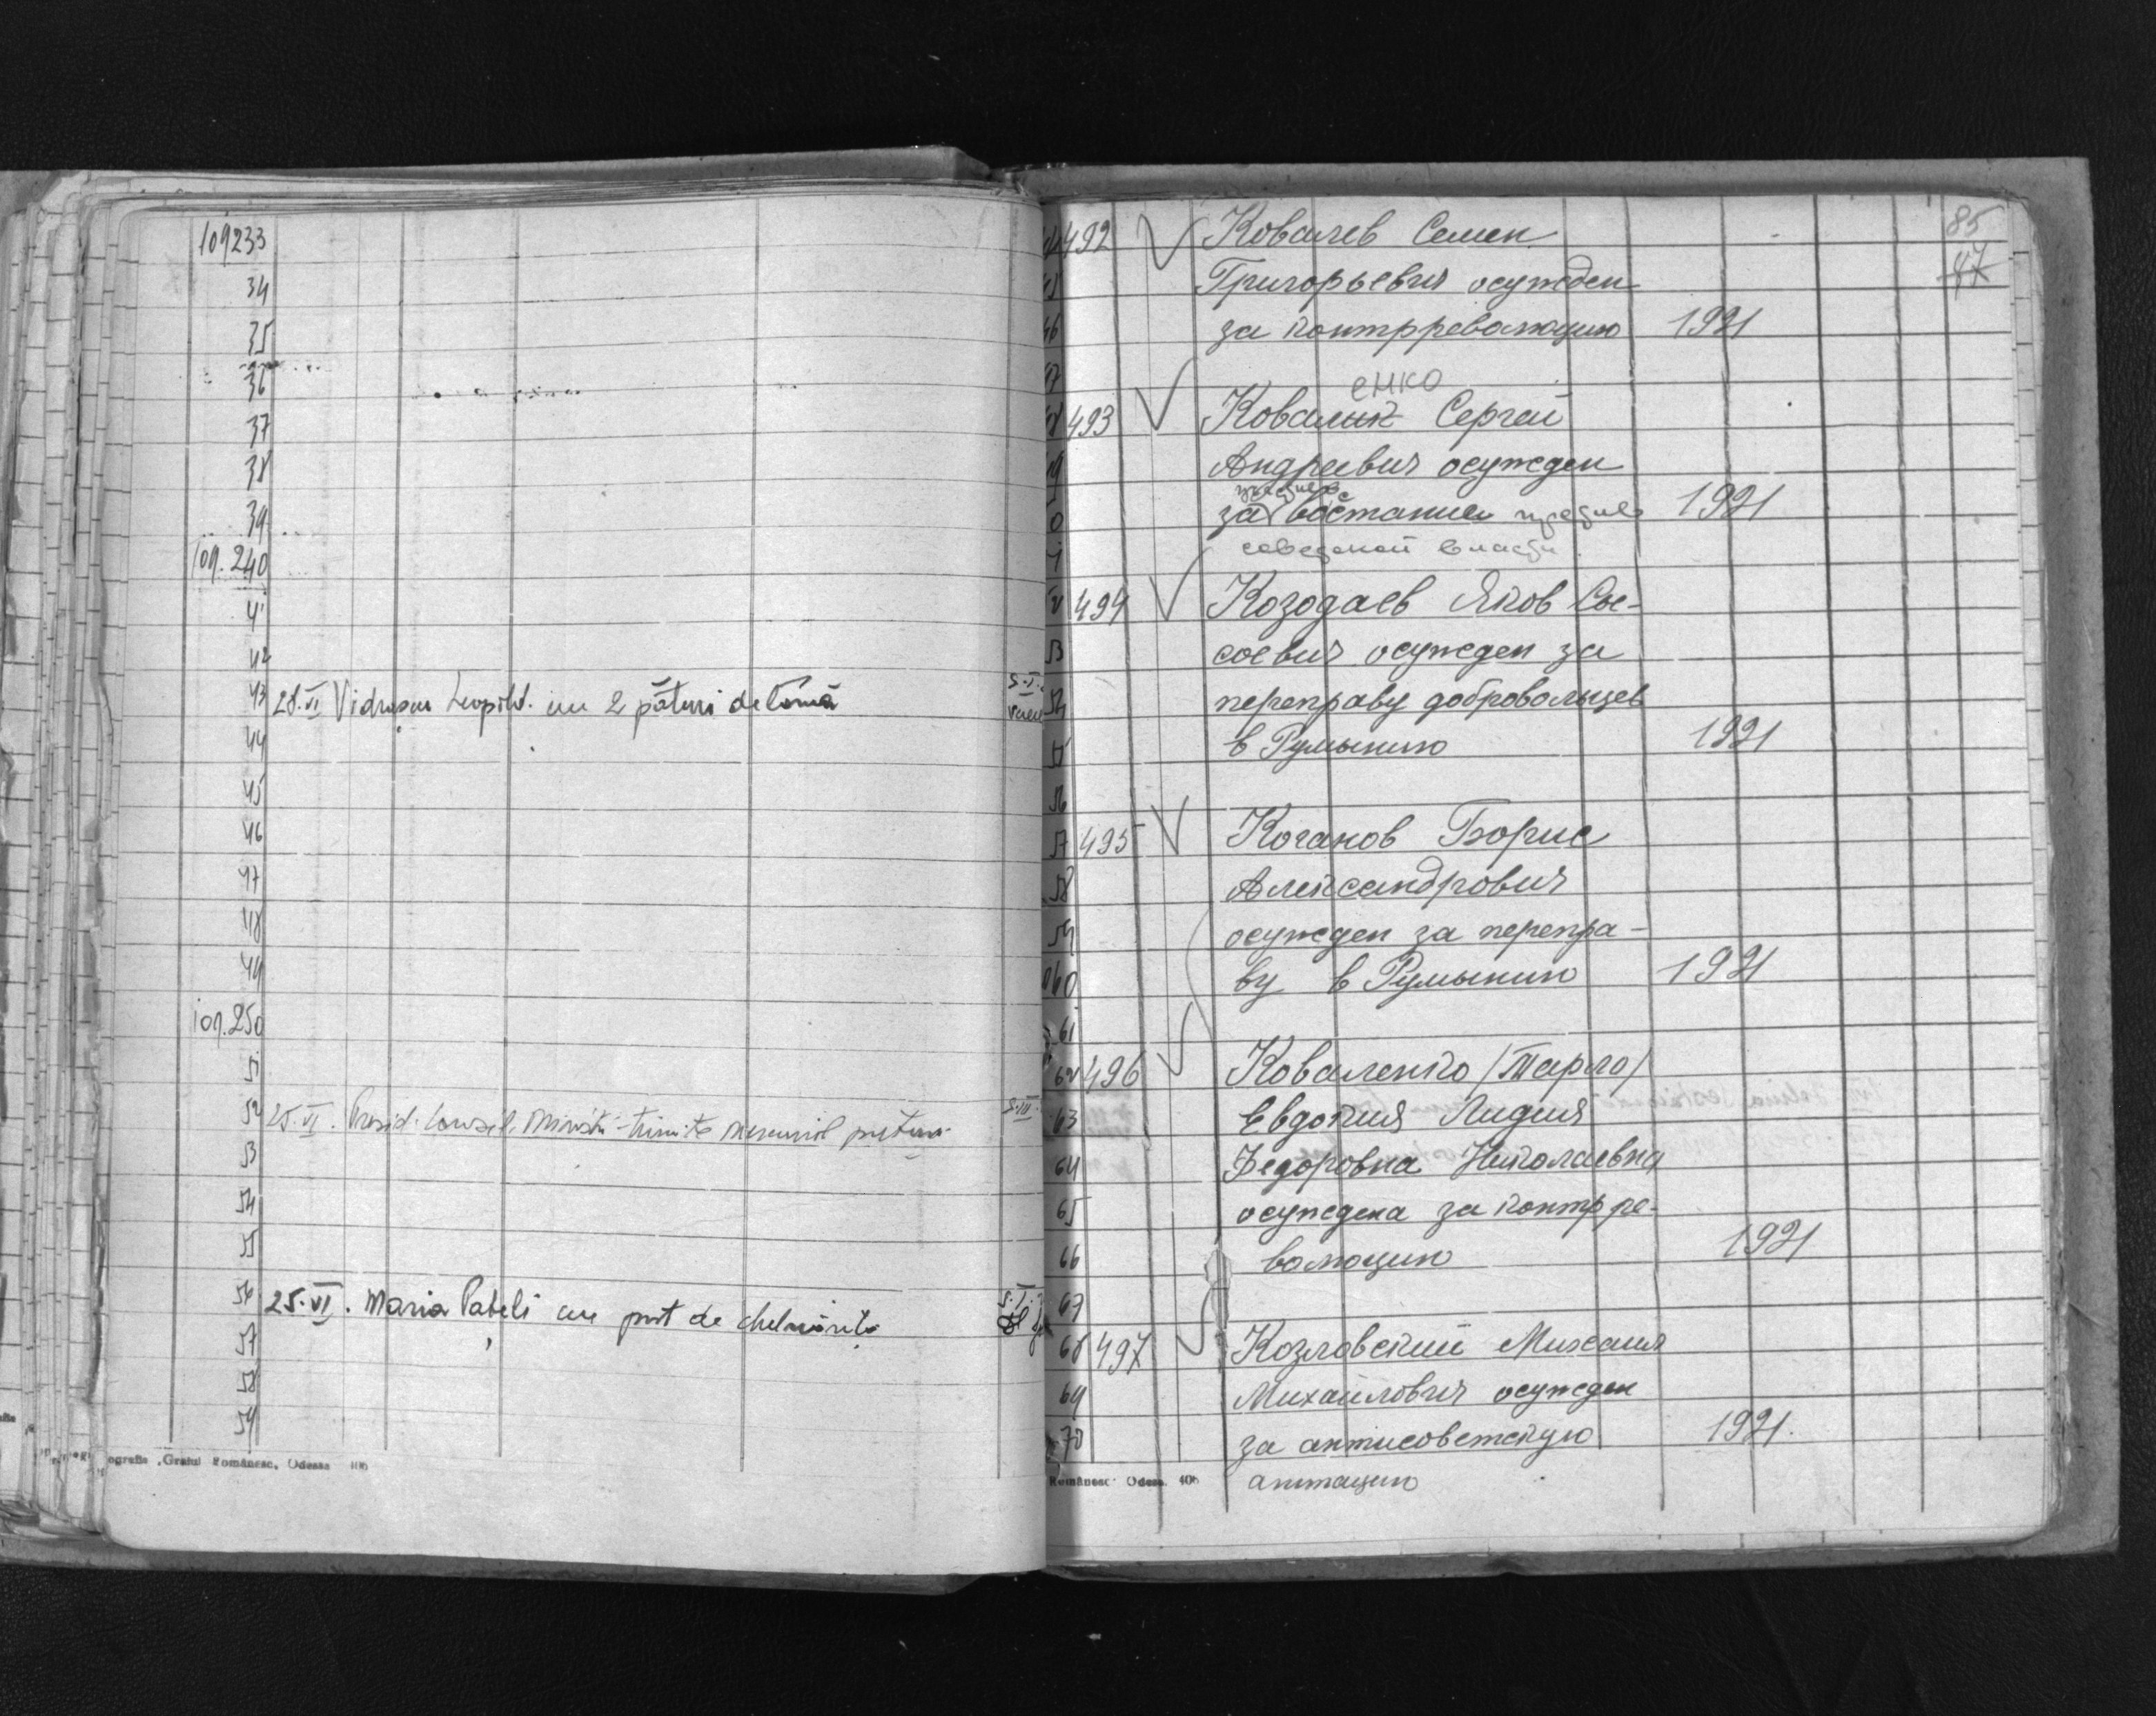 109233
34
35
36
37
38
39
109.240
41
42
43 28.VI Vidrașcu Leopold. cu 2 pături de lână S.I.
44
45
46
47
48
49
109.250
51
52 25.VI. Presid. Consil. Miniștri trimite S.III.
53
54
55
56 25.VI. Maria Pateli cu post de chelnăriță S.I.
57
58
59
Tipografia „Graiul Românesc„ Odessa 406
85
87
492 Ковалев Семен
Григорьевич осужден
за контрреволюцию 1921
енко
493 Ковалик Сергей
Андреевич осужден
участие в
за востание против 1921
советской власти.
494 Козодаев Яков Сы-
соевич осужден за
переправу добровольцев
в Румынию 1921
56
57 495 Коганов Борис
58 Александрович
59 осужден за перепра-
60 ву в Румынию 1921
61
62 496 Коваленко /Тарло/
63 Евдокия Лидия
64 Федоровна Николаевна
65 осуждена за контрре-
66 волюцию 1921
67
68 497 Козловский Михаил
69 Михайлович осужден
70 за антисоветскую 1921.
агитацию
Românesc„ Odess. 406